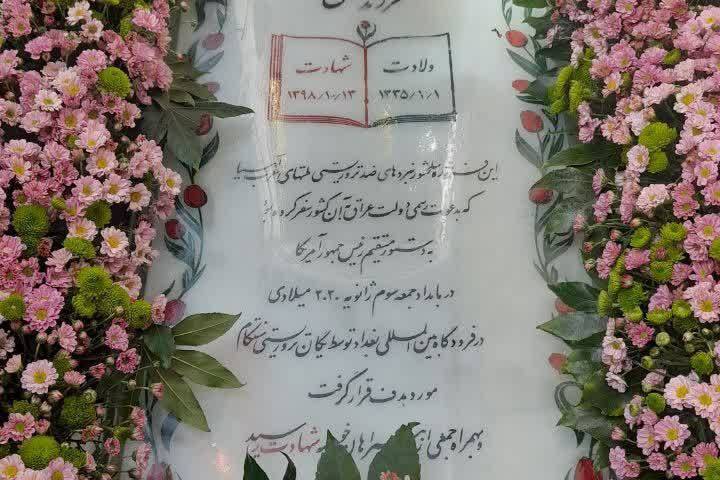 ولادت
۱۳۳۵/۱/۱
شهادت
۱۳۹۸/۱۰/۱۳
این فرمانده کشور نبردهای ضد تروریستی ملتهای
که بدعوت رسمی دولت عراق به آن کشور سفر کرده بود
به دستور مستقیم رئیس جمهور آمریکا
در بامداد جمعه سوم ژانویه ۲۰۲۰ میلادی
در فرودگاه بین المللی بغداد توسط یگان تروریستی سنتکام
مورد هدف قرار گرفت
و بهمراه جمعی از همراهان خود به شهادت رسید